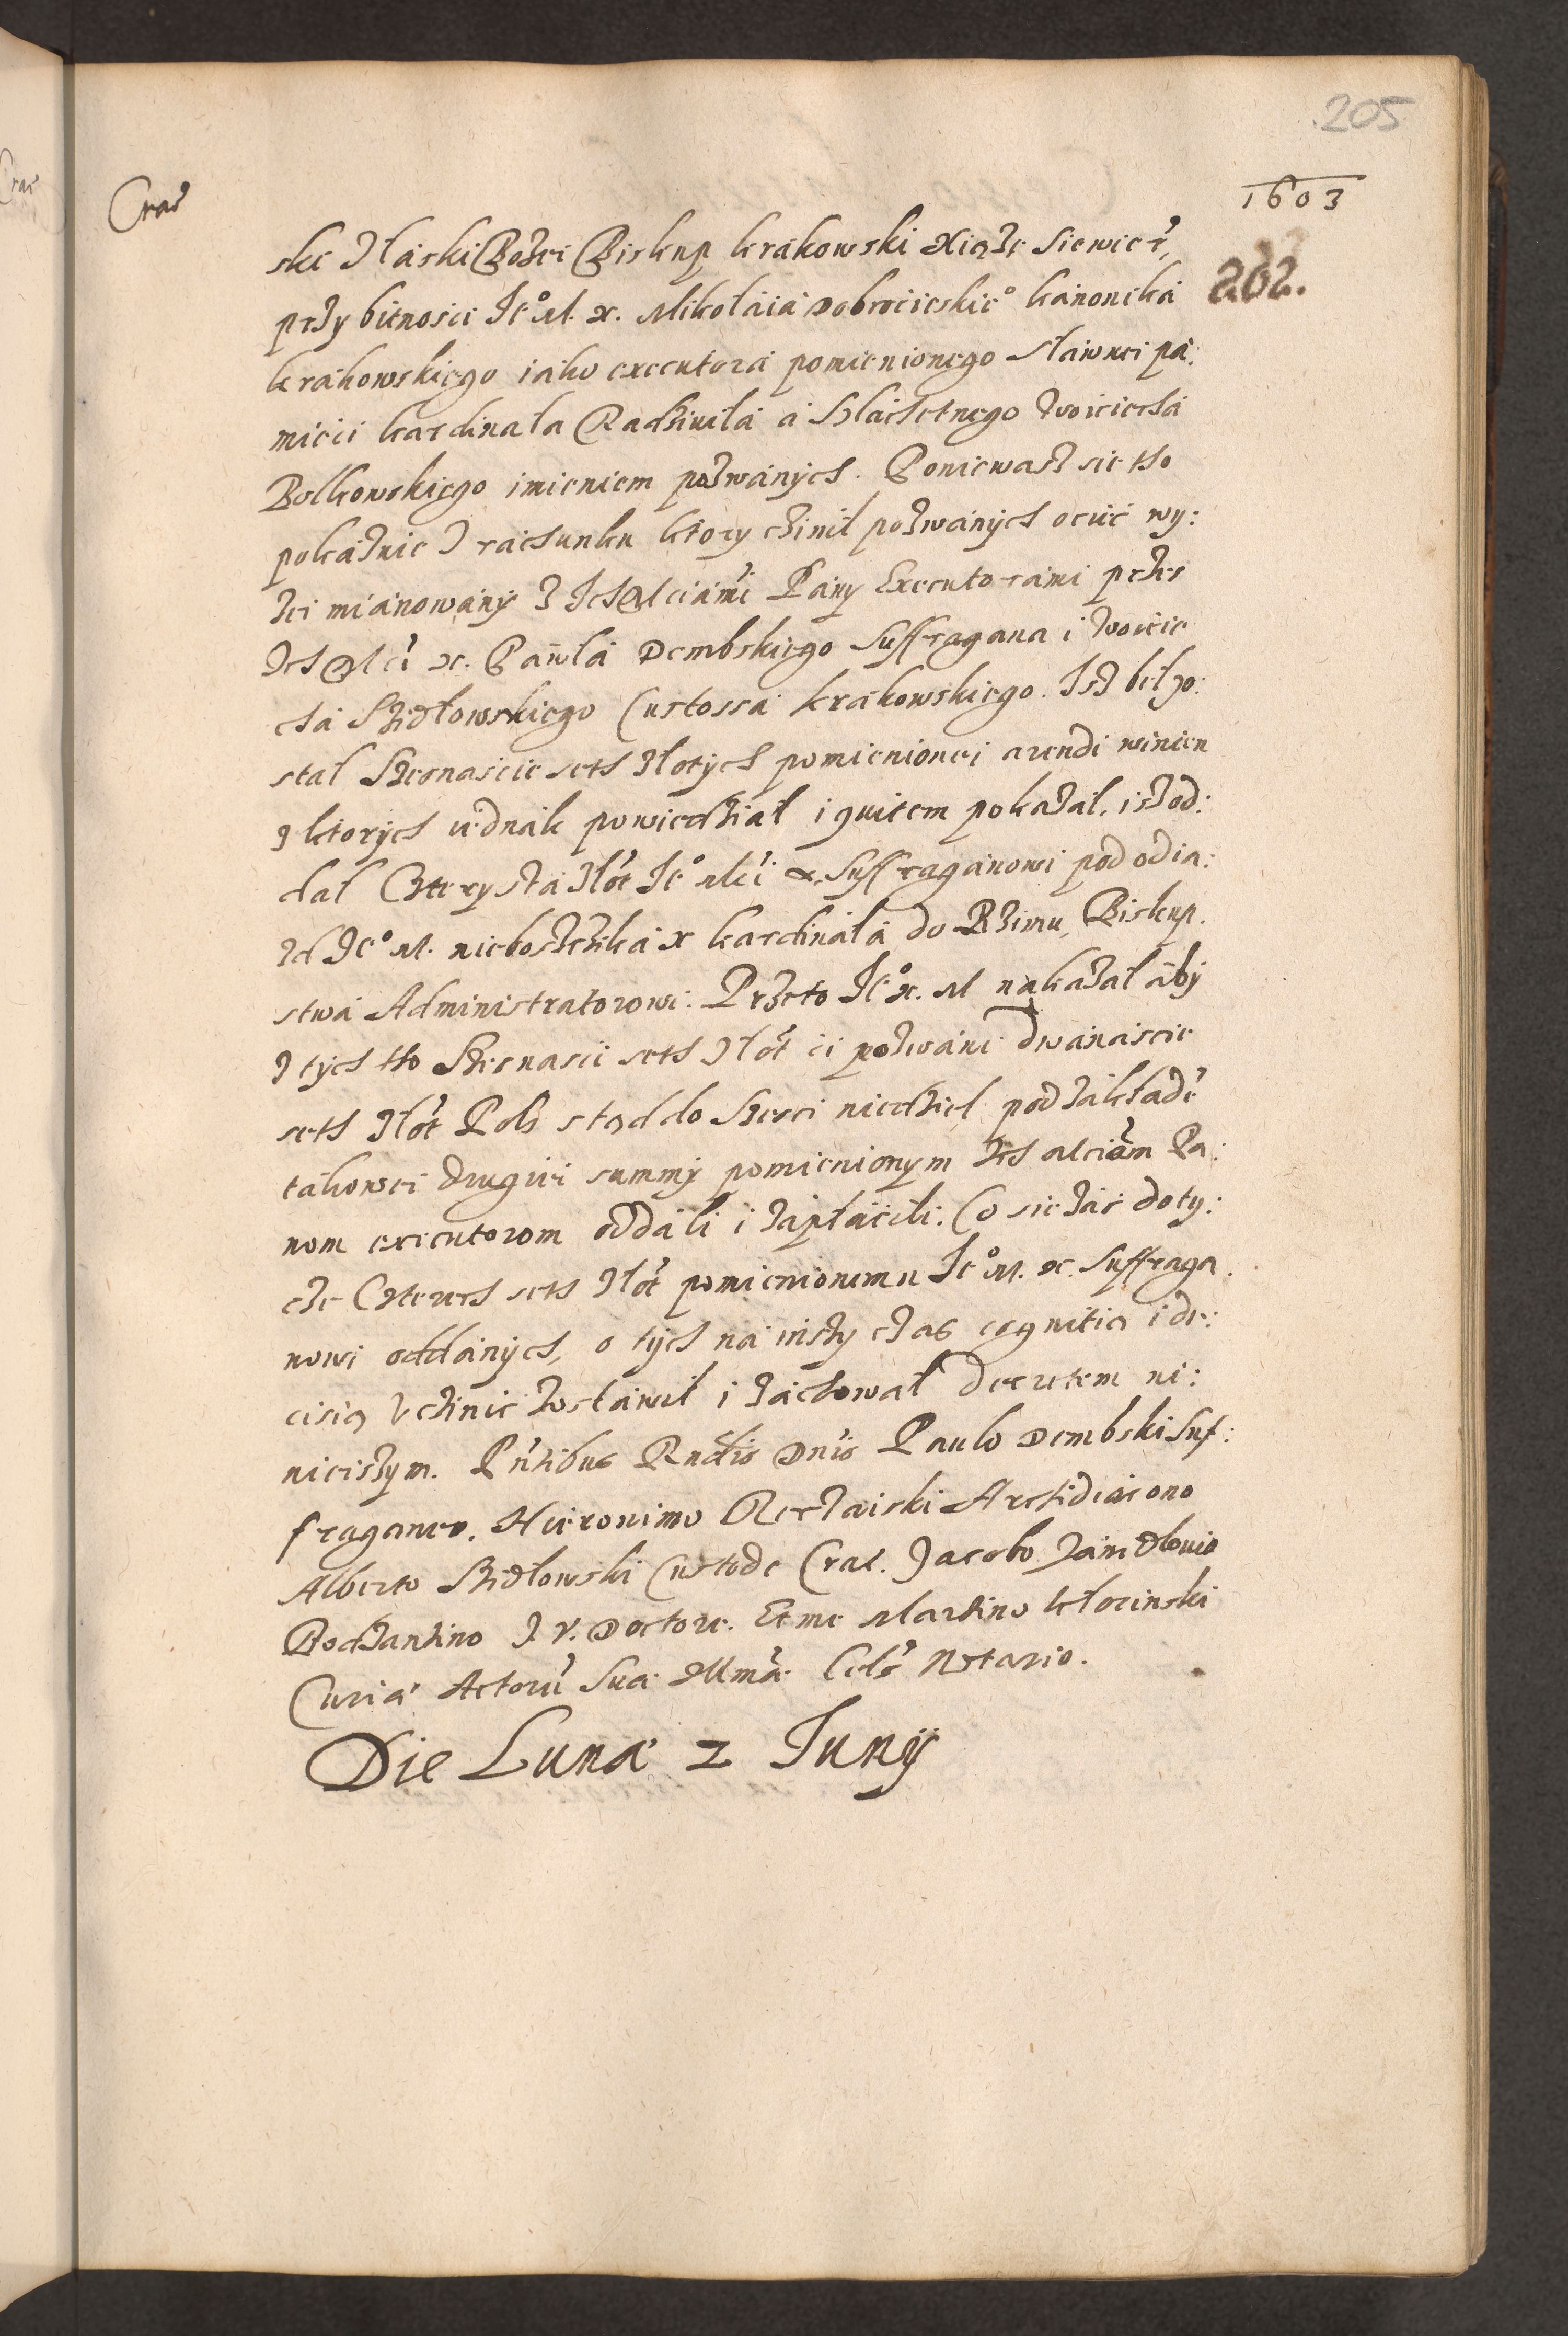 205
1603
Crac̉
202.
ski Z łaski Bożei Biskup krakowski Xiąże Siewier̉,
przy bitnosci Jeº M. x. Mikołaia Dobrocieskieº kanonika
krakowskiego iako executora pomienionego sławnei pa:
mieci kardinała Radziwiła a Slachetnego Woiciecha
Bolkowskiego imieniem pozwanych. Poniewasz sie tho
pokazuie z rachunku ktory czinił pozwanych ociec wy:
zei mianowany z Ich Mciami Pany Executorami przes
Ich Mci x. Pawła Dembskiego Suffragana i Woicie
cha Szidłowskiego Custossa krakowskiego. Isz beł po:
stal Szesnascie seth złotych pomienionei arendi winien
z ktorych iednak powiedział i quitem pokazał, isz od:
dal Czterysta złot Jeº Mci x. Suffraganowi pod odia:
zd Jeº M. nieboszczika x kardinała do Rzimu, Biskup.
stwa Administratorowi. Przeto Jeº x. M nakazał aby
z tych tho Szesnasci seth złot ci pozwani dwanascie
seth złot Pols stąd do Szesci niedziel pod zakładẽ
takowei drugiei summy pomienionym Ich Mciam Pa:
nom executorom oddali i zapłacili. Co sie zas doty:
cze Czterech seth złot pomienionemu Jeº M. x. Suffraga.
nowi oddanych, o tych na inszy czas cognitią i de:
cisią vczinic zostawił i zachował decretem ni:
nieiszym. Pñtibus Rndis Dnis Paulo Dembski Suf:
fraganeo. Hieronimo Rerzaiski Archidiacono
Alberto Szidłowski Custode Crac. Jacobo Janidlovio
Bodzantino I. V. Doctore. Et me Martino kłocinski
Curiæ Actorũ Suæ Illmæ Celsⁿ Notario.
Die Lunæ 2 Junij